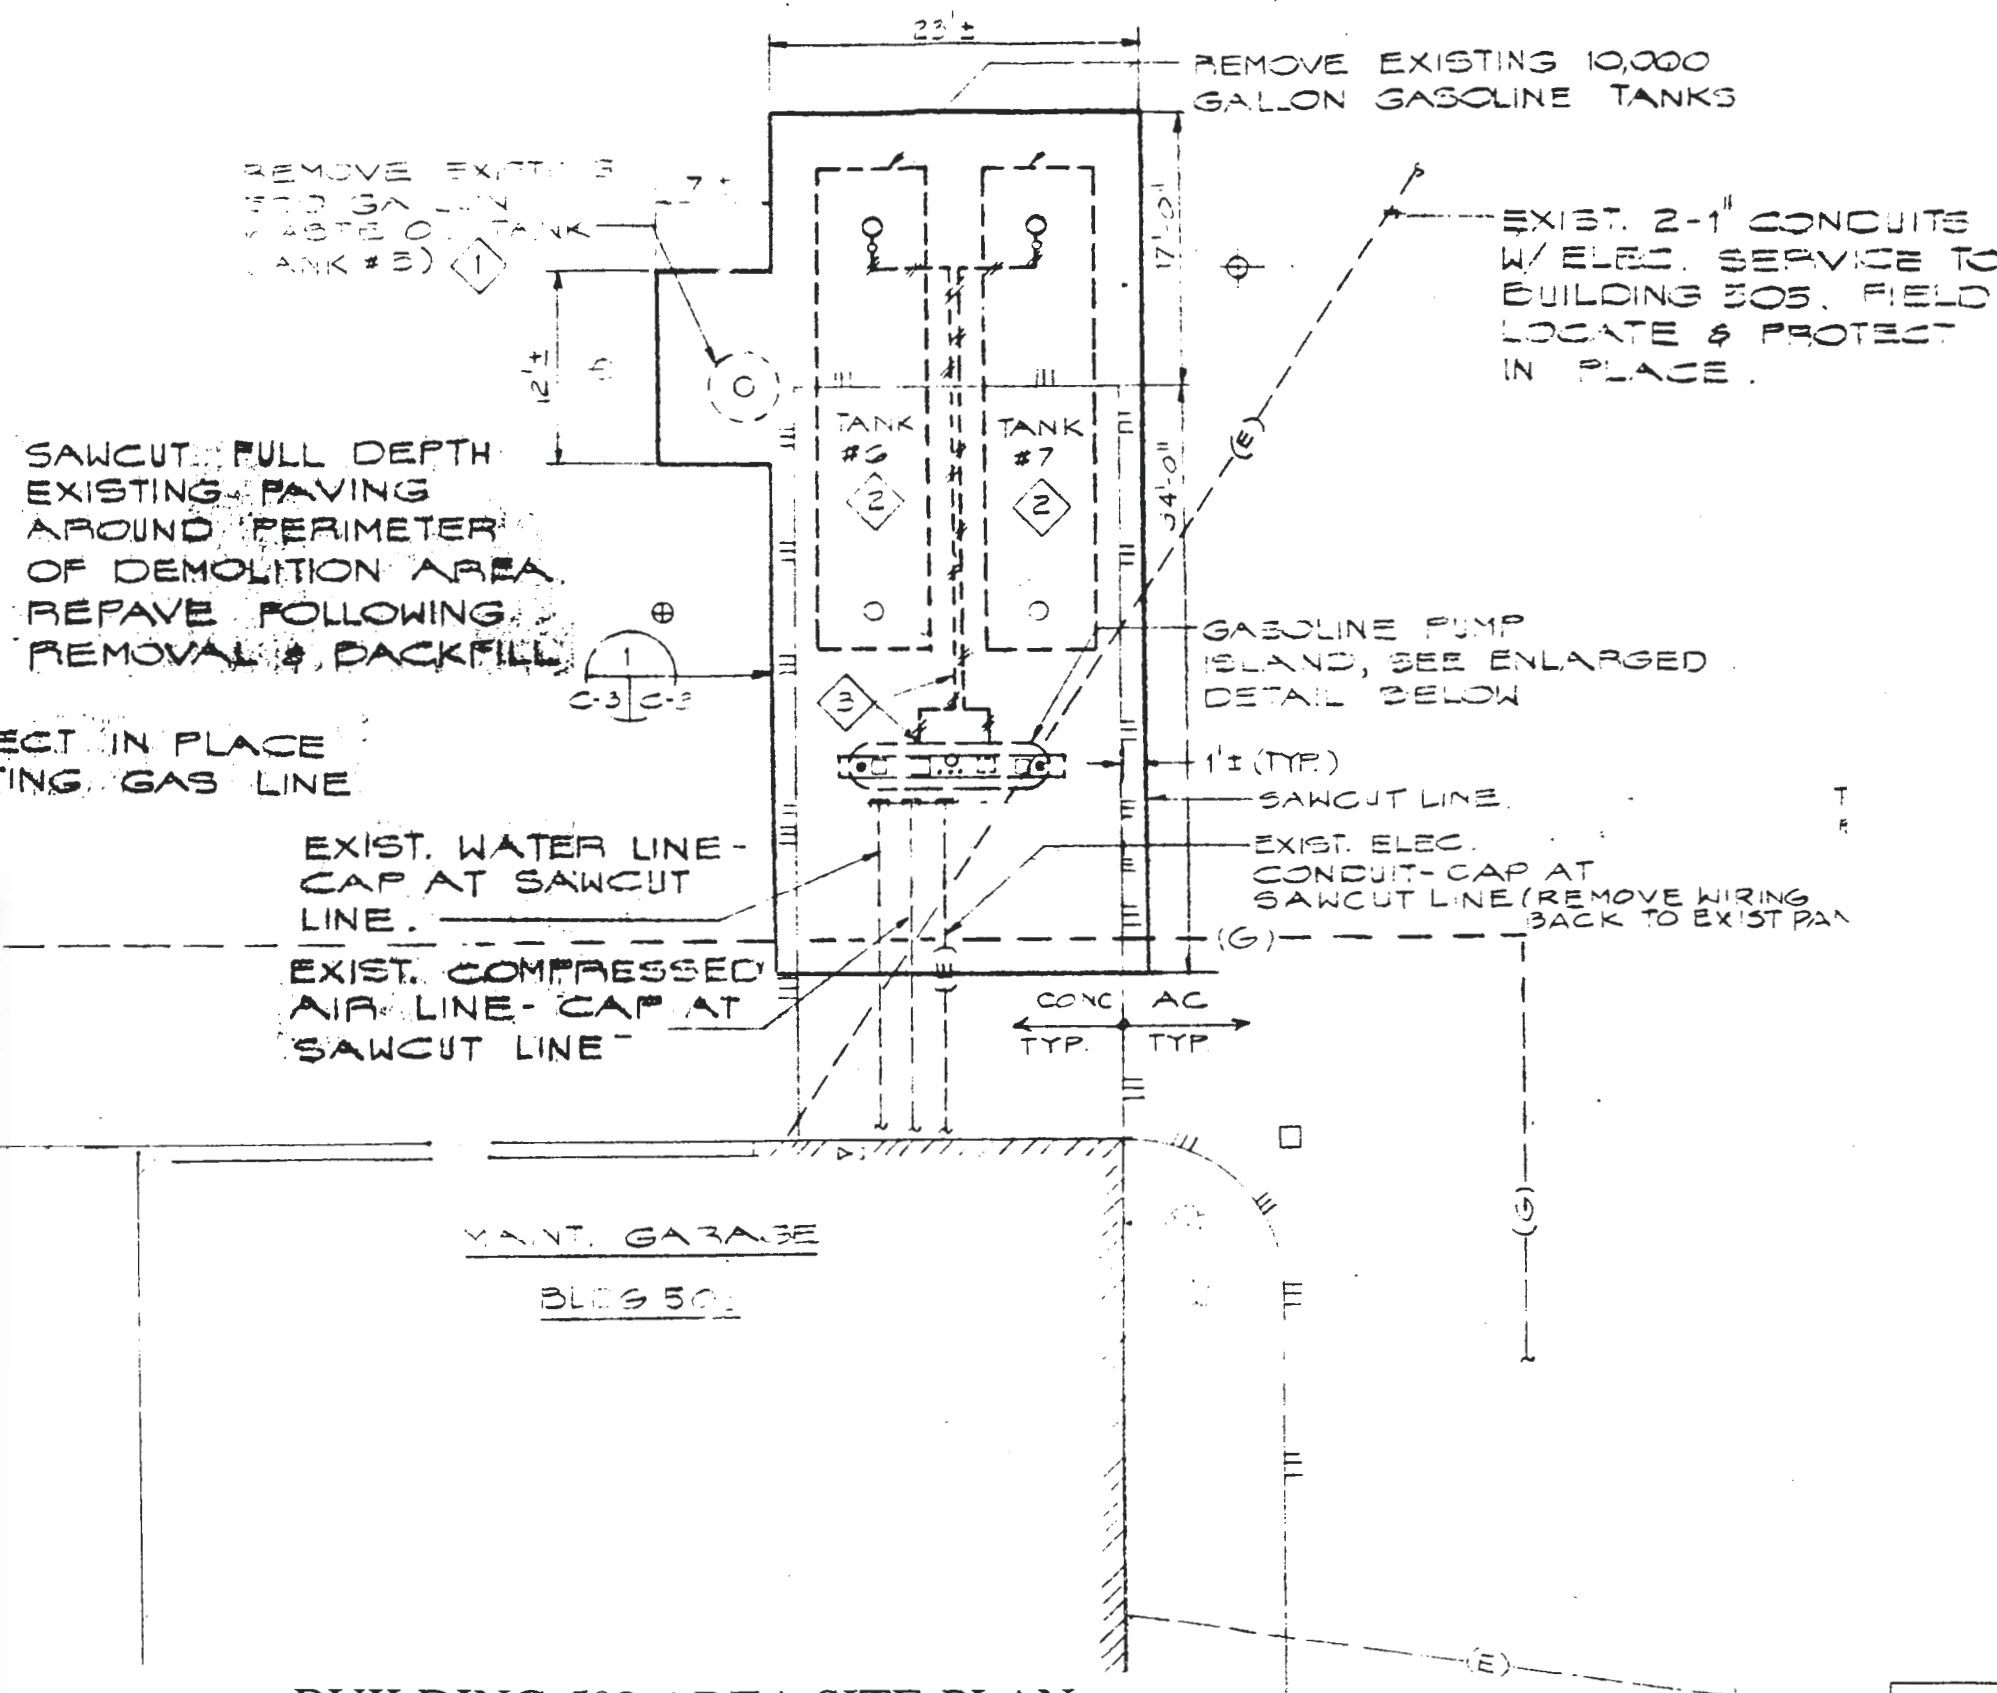 23'±
REMOVE EXISTING 10,000
GALLON GASOLINE TANKS
REMOVE EXISTING
GALLON
WASTE OIL TANK
TANK #5) 1
7'±
17'-0"
EXIST. 2-1" CONDUITS
W/ ELEC. SERVICE TO
BUILDING 505. FIELD
LOCATE & PROTECT
IN PLACE.
12'±
(E)
TANK
#6
2
TANK
#7
2
34'-0"
SAWCUT FULL DEPTH
EXISTING PAVING
AROUND PERIMETER
OF DEMOLITION AREA.
REPAVE FOLLOWING
REMOVAL & BACKFILL
1
C-3 C-3
3
GASOLINE PUMP
ISLAND, SEE ENLARGED
DETAIL BELOW
ECT IN PLACE
TING GAS LINE
1'± (TYP.)
SAWCUT LINE.
T
EXIST. WATER LINE-
CAP AT SAWCUT
LINE.
EXIST. ELEC.
CONDUIT- CAP AT
SAWCUT LINE (REMOVE WIRING
BACK TO EXIST PAN
(G)
EXIST. COMPRESSED
AIR LINE- CAP AT
SAWCUT LINE
CONC AC
TYP. TYP.
(G)
MAINT. GARAGE
BLDG
(E)
AREA SITE PLAN